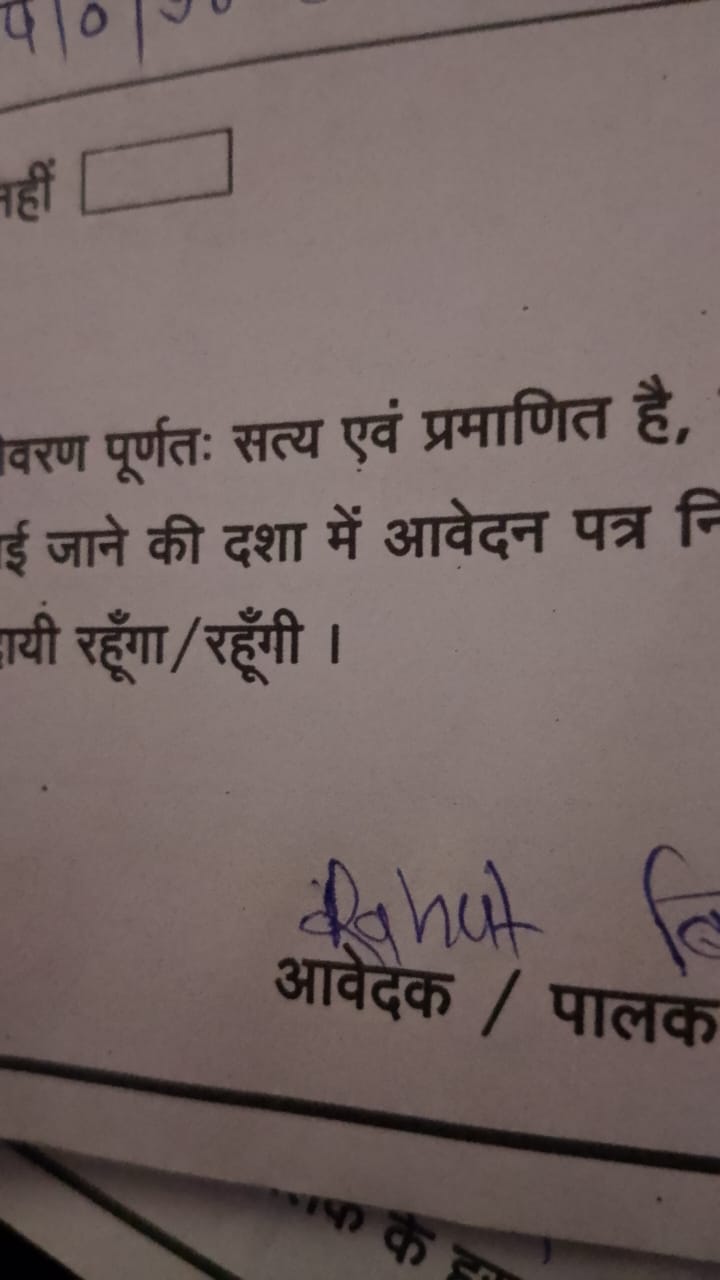 नहीं
वरण पूर्णतः सत्य एवं प्रमाणित है,
ई जाने की दशा में आवेदन पत्र नि
ायी रहूँगा/रहूँगी ।
Rahul
आवेदक / पालक
के